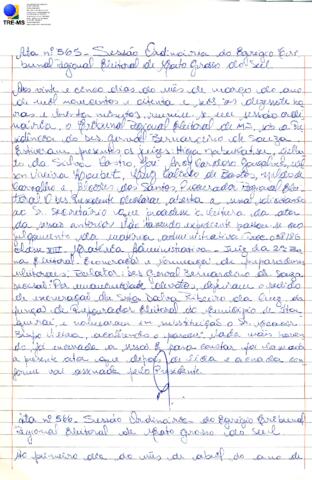 TRE-MS
Ata nº 565 - Sessão Ordinária do Egrégio Tri
bunal Regional Eleitoral de Mato Grosso do Sul
Aos vinte e cinco dias do mês de março do ano
de mil novecentos e oitenta e seis, às dezessete ho
ras e trinta minutos, reuniu-se em sessão ordi
nária, o Tribunal Regional Eleitoral de MS, sob a Pre
sidência do Des. Gerval Bernardino de Souza.
Estiveram presentes os juízes
da Silva Castro, Cardoso
Vieira de Bastos,
Carvalho e dos Santos, Procurador Regional Elei
toral. O Des. Presidente declarou aberta a sessão, solicitando
ao Sr. Secretário que procedesse a leitura da ata
da sessão anterior. Não havendo expediente passou-se ao
julgamento da matéria administrativa:
Classe VII. Matéria Administrativa - Juiz da 22ª
Zona Eleitoral. Exoneração e nomeação de preparadores
eleitorais. Relator: Des. Gerval Bernardino de Souza
Por unanimidade de votos, deferiram o pedido
de exoneração de Dalva Ribeiro da Cruz, da
função de Preparador Eleitoral do município de Ita
e nomearam em substituição o Sr.
Vieira, acolhendo o parecer. Nada mais haven
do foi encerrada a sessão. E para constar foi lavrada
a presente ata que depois de lida e achada con
forme vai assinada pelo Presidente.
Ata nº 566 - Sessão Ordinária do Egrégio Tribunal
Regional Eleitoral de Mato Grosso do Sul.
Ao primeiro dia do mês de abril do ano de